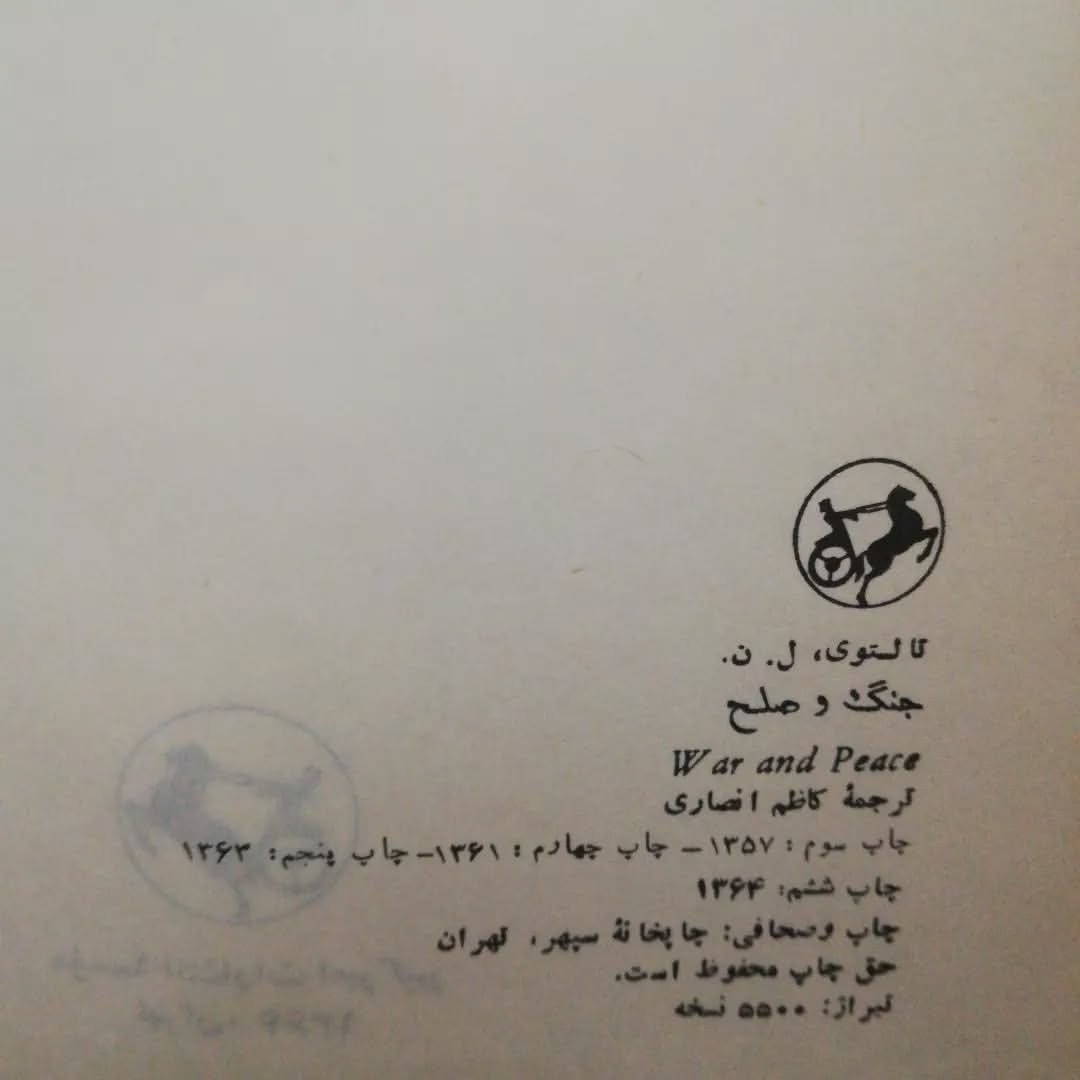 تالستوی، ل. ن.
جنگ و صلح
War and Peace
ترجمهٔ کاظم انصاری
چاپ سوم: ۱۳۵۷ – چاپ چهارم: ۱۳۶۱ – چاپ پنجم: ۱۳۶۳
چاپ ششم: ۱۳۶۴
چاپ وصحافی: چاپخانهٔ سپهر، تهران
حق چاپ محفوظ است.
تیراژ: ۵۵۰۰ نسخه